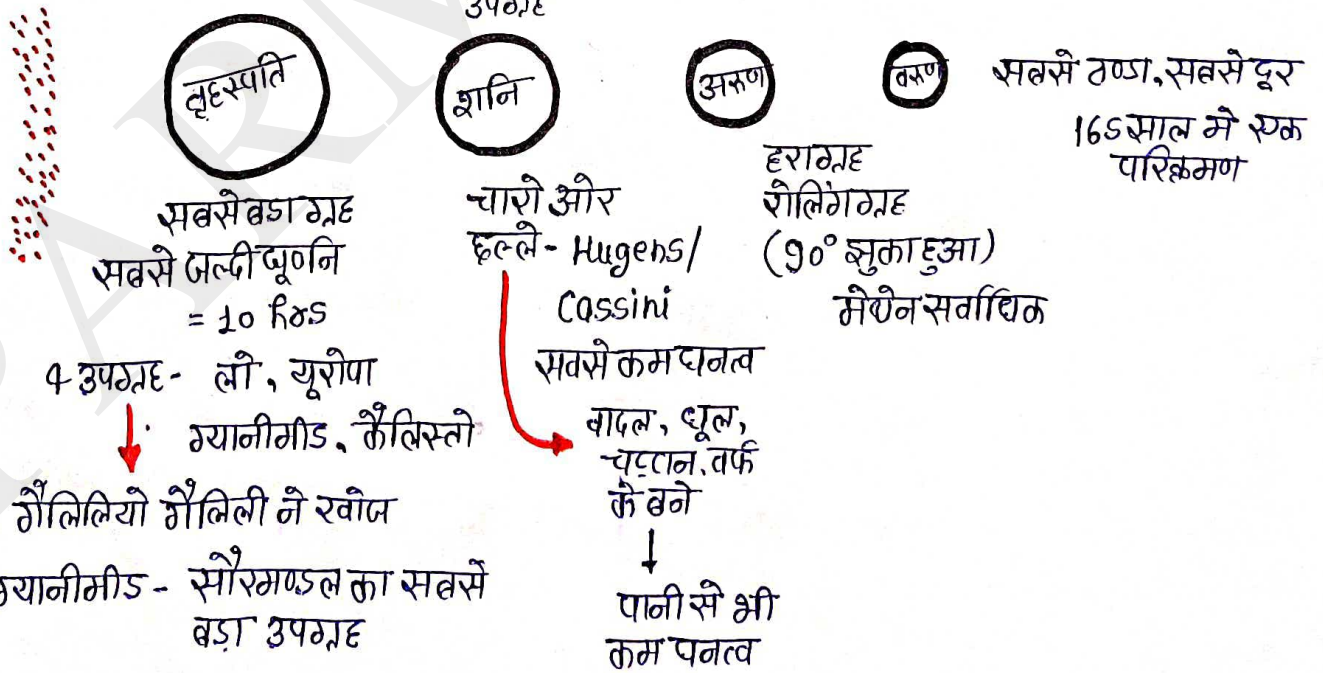 उपग्रह
बृहस्पति
शनि
अरुण
वरुण
सबसे ठण्डा, सबसे दूर
165 साल मे एक
परिक्रमण
सबसे बडा ग्रह
सबसे जल्दी घूर्णन
= 10 hrs
4 उपग्रह - लो, यूरोपा
ग्यानीमीड, कैलिस्तो
गैलिलियो गैलिली ने खोज
ग्यानीमीड - सौरमण्डल का सबसे
बड़ा उपग्रह
चारो ओर
छल्ले - Hugens/
Cassini
सबसे कम घनत्व
बादल, धूल,
चट्टान, बर्फ
के बने
पानी से भी
कम घनत्व
हरा ग्रह
रोलिंग ग्रह
(90° झुका हुआ)
मेथेन सर्वाधिक